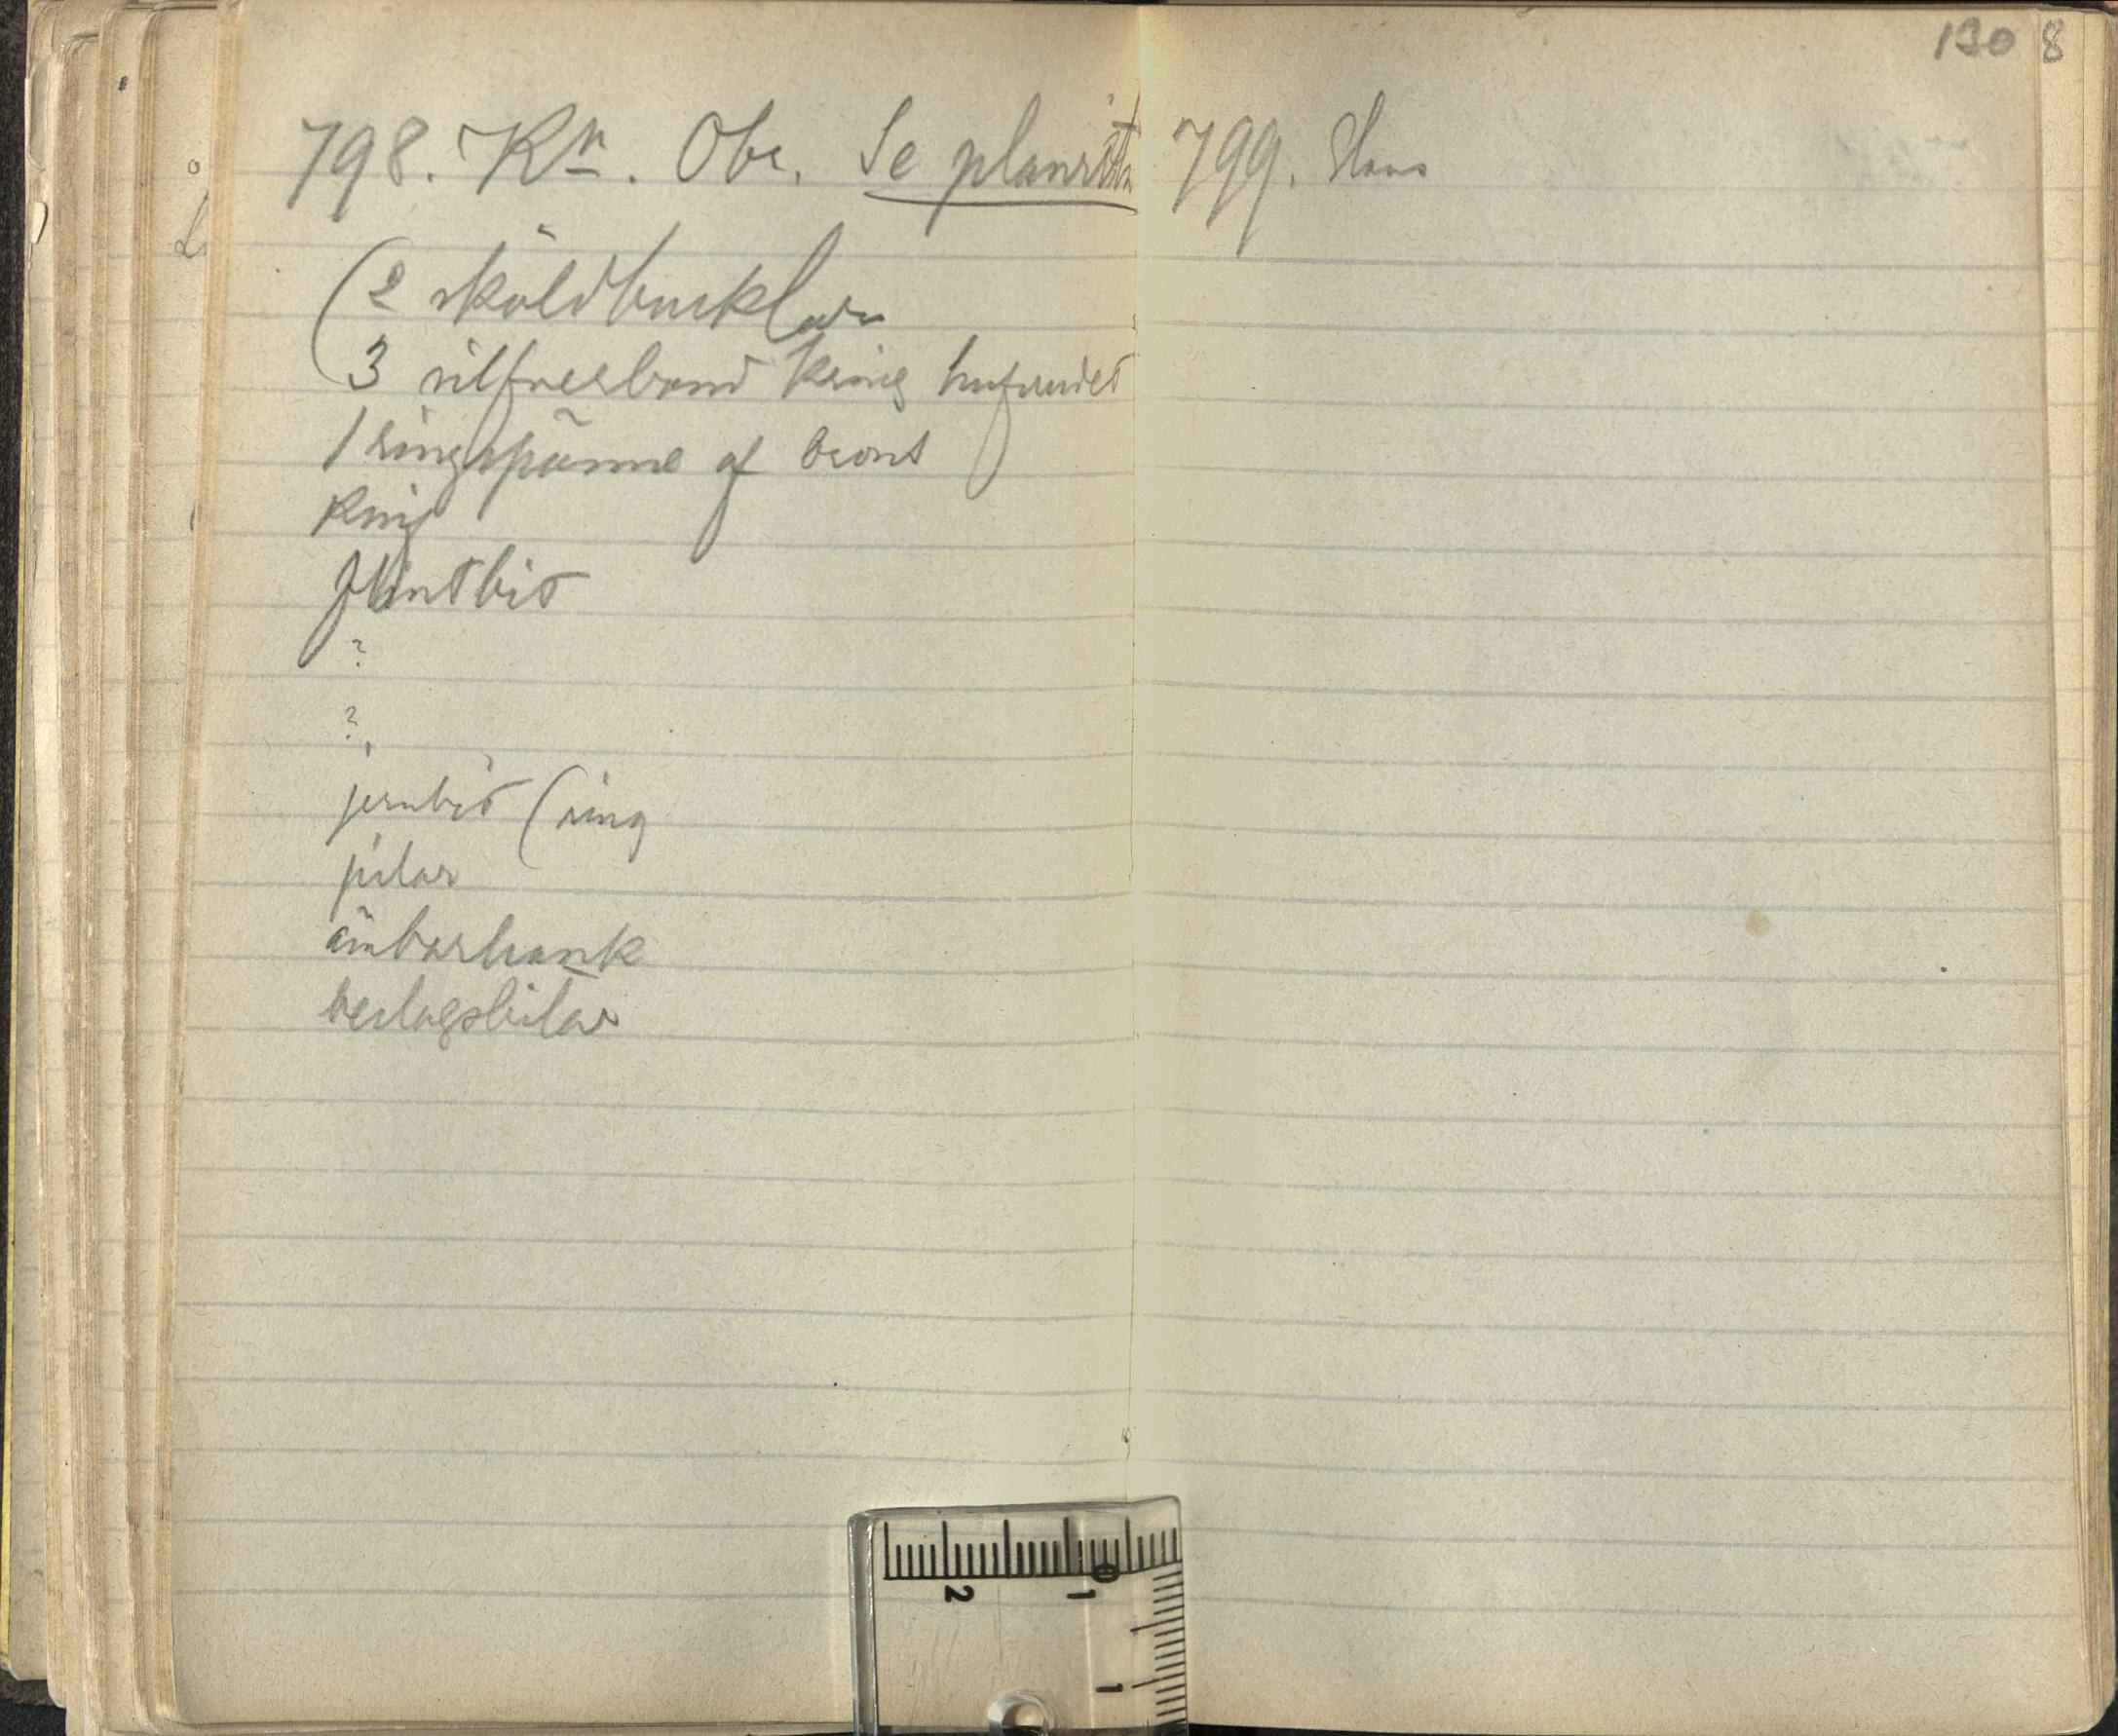 130 8
798. Kn. Obr. Se planritn
(2 sköldbucklor
3 silfverband kring hufvudet
1 ringspänne af brons
Knif
flintbit
?
?
jernbit (ring
pilar
ämbarhank
beslagsbitar
799. Hans
2 1
0
1